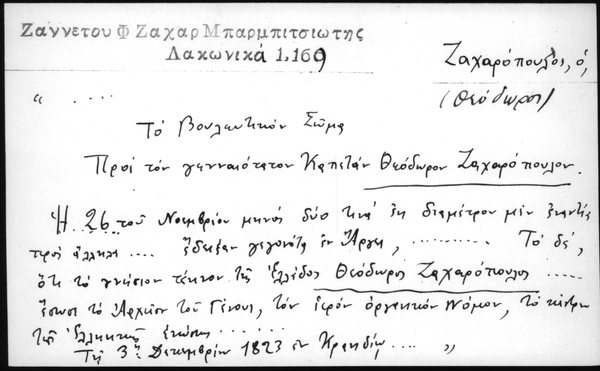 Ζαννετου Φ Ζαχαρ Μπαρμπιτσιωτης
Λακωνικά 1.169
Ζαχαρόπουλος, ὁ,
(Θεόδωρος)
“ ....
Τὸ Βουλευτικὸν Σῶμα
Πρὸς τὸν γενναιότατον Καπετὰν Θεόδωρον Ζαχαρόπουλον.
Ἡ 26 τοῦ Νοεμβρίου μηνὸς δύο τινὰ ἐκ διαμέτρου μὲν ἐναντία
πρὸς ἄλληλα .... ἔδειξαν γεγονότα ἐν Ἄργει, .......... Τὸ δέ,
ὅτι τὸ γνήσιον τέκνον τῆς Ἑλλάδος Θεόδωρος Ζαχαρόπουλος .....
ἔσωσε τὸ Ἀρχεῖον τοῦ Γένους, τὸν ἱερὸν ὀργανικὸν Νόμον, τὸ κέντρον
τῆς Ἑλληνικῆς ἑνώσεως ......
Τῇ 3ῃ Δεκεμβρίου 1823 ἐν Κρανιδίῳ .... „